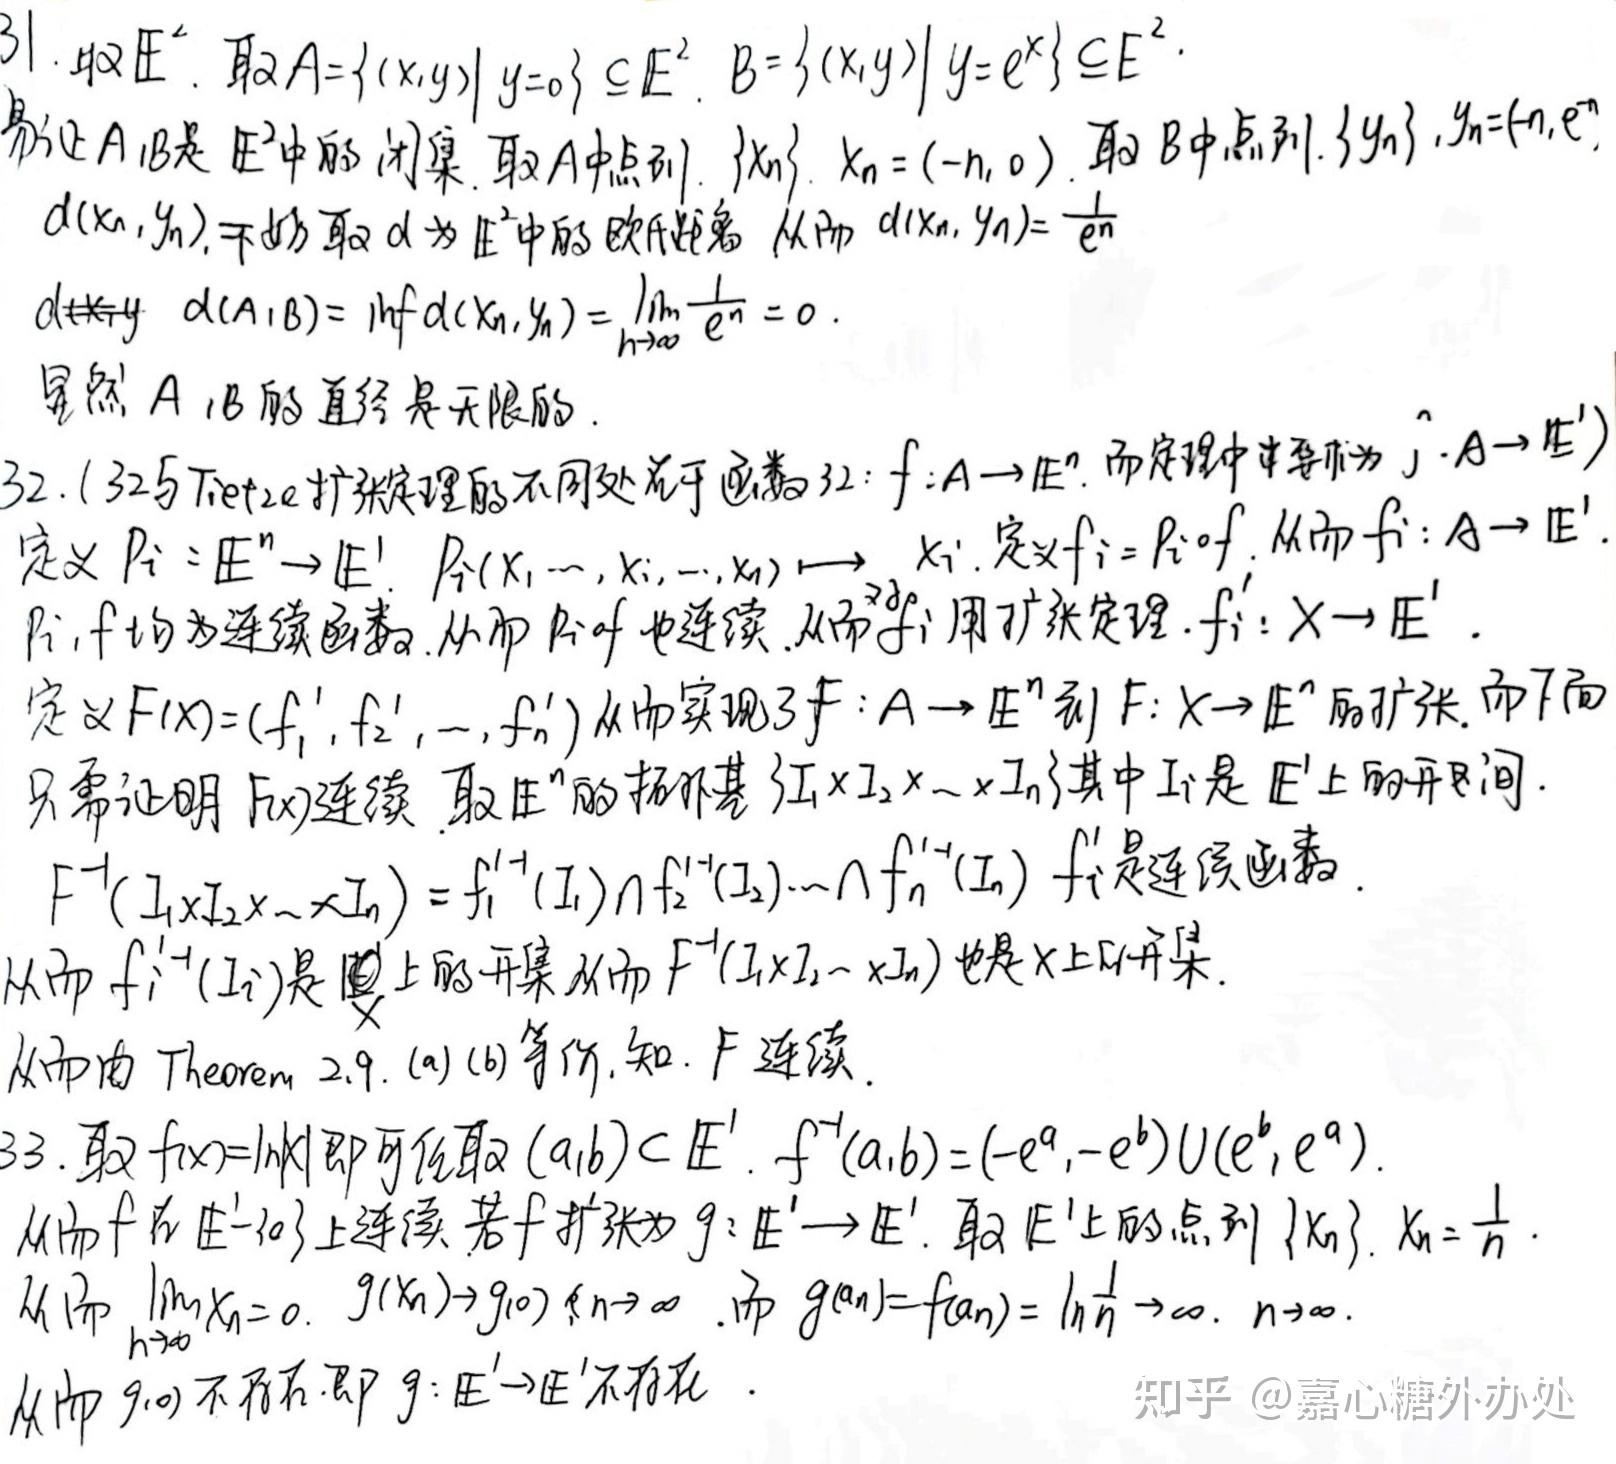 31. 取E². 取A={(x,y)| y=0} ⊆ E². B={(x,y)| y=eˣ} ⊆ E².
易证A,B是 E²中的闭集. 取A中点列. {xn}. xn=(-n, 0). 取B中点列. {yn}, yn=(-n, e⁻ⁿ)
d(xn, yn), 不妨取 d 为 E²中的欧氏距离 从而 d(xn, yn)= 1/eⁿ
d(A,B)= inf d(xn, yn) = lim n→∞ 1/eⁿ = 0.
显然 A,B的直径是无限的.
32. (32与Tietze扩张定理的不同处在于函数32: f: A→Eⁿ. 而定理中 f: A→E¹)
定义 Pi : Eⁿ→E¹. Pi(x₁ ⋯, xi, ⋯, xn) ⟼ xi. 定义fi = Pi∘f. 从而 fi: A→E¹.
Pi, f均为连续函数. 从而 Pi∘f 也连续. 从而对fi用扩张定理. fi′: X→E¹.
定义 F(x)=(f₁′, f₂′, ⋯, fn′) 从而实现了 f: A→Eⁿ 到 F: X→Eⁿ的扩张. 而下面
只需证明 F(x)连续. 取Eⁿ的拓扑基{I₁×I₂×⋯×In}其中 Ii是 E¹上的开区间.
F⁻¹(I₁×I₂×⋯×In) = f₁′⁻¹(I₁)∩f₂′⁻¹(I₂)⋯∩fn′⁻¹(In) fi′是连续函数.
从而 fi′⁻¹(Ii)是 X 上的开集 从而 F⁻¹(I₁×I₂⋯×In) 也是X上的开集.
从而由 Theorem 2.9. (a) (b) 等价, 知. F 连续.
33. 取 f(x)=ln|x| 即可任取 (a,b)⊂E¹. f⁻¹(a,b)=(-eᵃ, -eᵇ)∪(eᵇ, eᵃ).
从而f在E¹-{0}上连续. 若f扩张为 g: E¹→E¹. 取E¹上的点列{xn}. xn=1/n.
从而 lim n→∞ xn=0. g(xn)→g(0) n→∞. 而 g(an)=f(an)= ln 1/n →∞. n→∞.
从而g(0)不存在. 即 g: E¹→E¹不存在.
知乎 @嘉心糖外办处